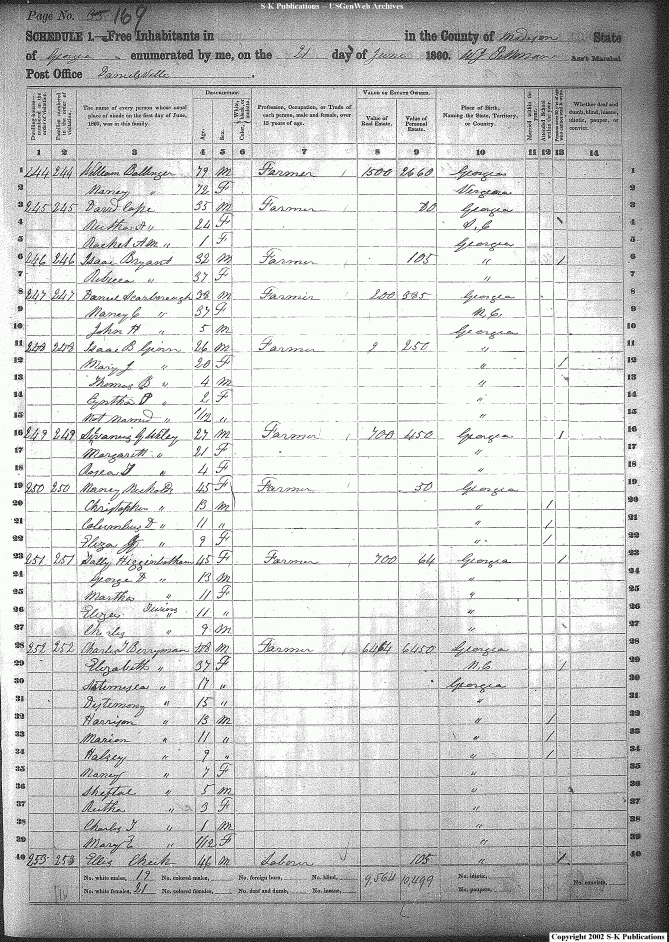 S-K Publications -- USGenWeb Archives
Page No. 169
SCHEDULE 1.—Free Inhabitants in in the County of Madison State
of Georgia enumerated by me, on the 21 day of June 1860. Ass't Marshal
Post Office Danielsville
DESCRIPTION. VALUE OF ESTATE OWNED.
Dwelling-houses numbered in the order of visitation.
Families numbered in the order of visitation.
The name of every person whose usual place of abode on the first day of June, 1860, was in this family.
Age. Sex. White, black, or mulatto. Color
Profession, Occupation, or Trade of each person, male and female, over 15 years of age.
Value of Real Estate. Value of Personal Estate.
Place of Birth, Naming the State, Territory, or Country.
Married within the year. Attended School within the year.
Whether deaf and dumb, blind, insane, idiotic, pauper, or convict.
1 2 3 4 5 6 7 8 9 10 11 12 13 14
1 244 244 William Ballinger 79 M Farmer 1500 2660 Georgia 1
2 Nancy " 72 F Virginia 2
3 245 245 David Cape 35 M Farmer Georgia 3
4 " 24 F S.C 4
5 Rachel A M " 1 F Georgia 5
6 246 246 Isaac Bryant 32 M Farmer 105 " 1 6
7 Rebecca " 37 F " 7
8 247 247 Daniel Scarborough 38 M Farmer 200 335 Georgia 8
9 Nancy C " 37 F N.C. 9
10 John H " 5 M Georgia 10
11 248 248 Isaac B Ginn 26 M Farmer 250 " 11
12 Mary J " 20 F " 1 12
13 Thomas B " 4 M " 13
14 Cyntha P " 2 F " 14
15 Not Named " 1/12 " " 15
16 249 249 27 M Farmer 700 450 Georgia 1 16
17 Margarett " 21 F " 17
18 " 4 F " 18
19 250 250 Nancy 45 F Farmer 50 Georgia 19
20 Christopher " 13 M " 1 20
21 Columbus D " 11 " " 1 21
22 Eliza " 9 F " 1 22
23 251 251 Sally Higginbotham 45 F Farmer 700 64 Georgia 1 23
24 George D " 13 M " 24
25 Martha " 11 F " 25
26 Eliza " 11 " " 26
27 Charles " 9 M " 27
28 252 252 Charles T Berryman 48 M Farmer 6464 6450 Georgia 28
29 Elizabeth " 37 F N.C 1 29
30 " 17 " Georgia 30
31 Destemony " 15 " " 31
32 Harrison " 13 M " 1 32
33 Marion " 11 " " 1 33
34 Halsey " 9 " " 1 34
35 Nancy " 7 F " 35
36 " 5 M " 36
37 " 3 F " 37
38 Charles T " 1 M " 38
39 Mary E " F " 39
40 253 253 Ellis Cheek 46 M Labour 105 " 1 40
No. white males, 19 No. colored males, No. foreign born, No. blind, 9,564 10,499 No. idiotic,
No. white females, 21 No. colored females, No. deaf and dumb, No. insane, No. paupers, No. convicts,
Copyright 2002 S-K Publications